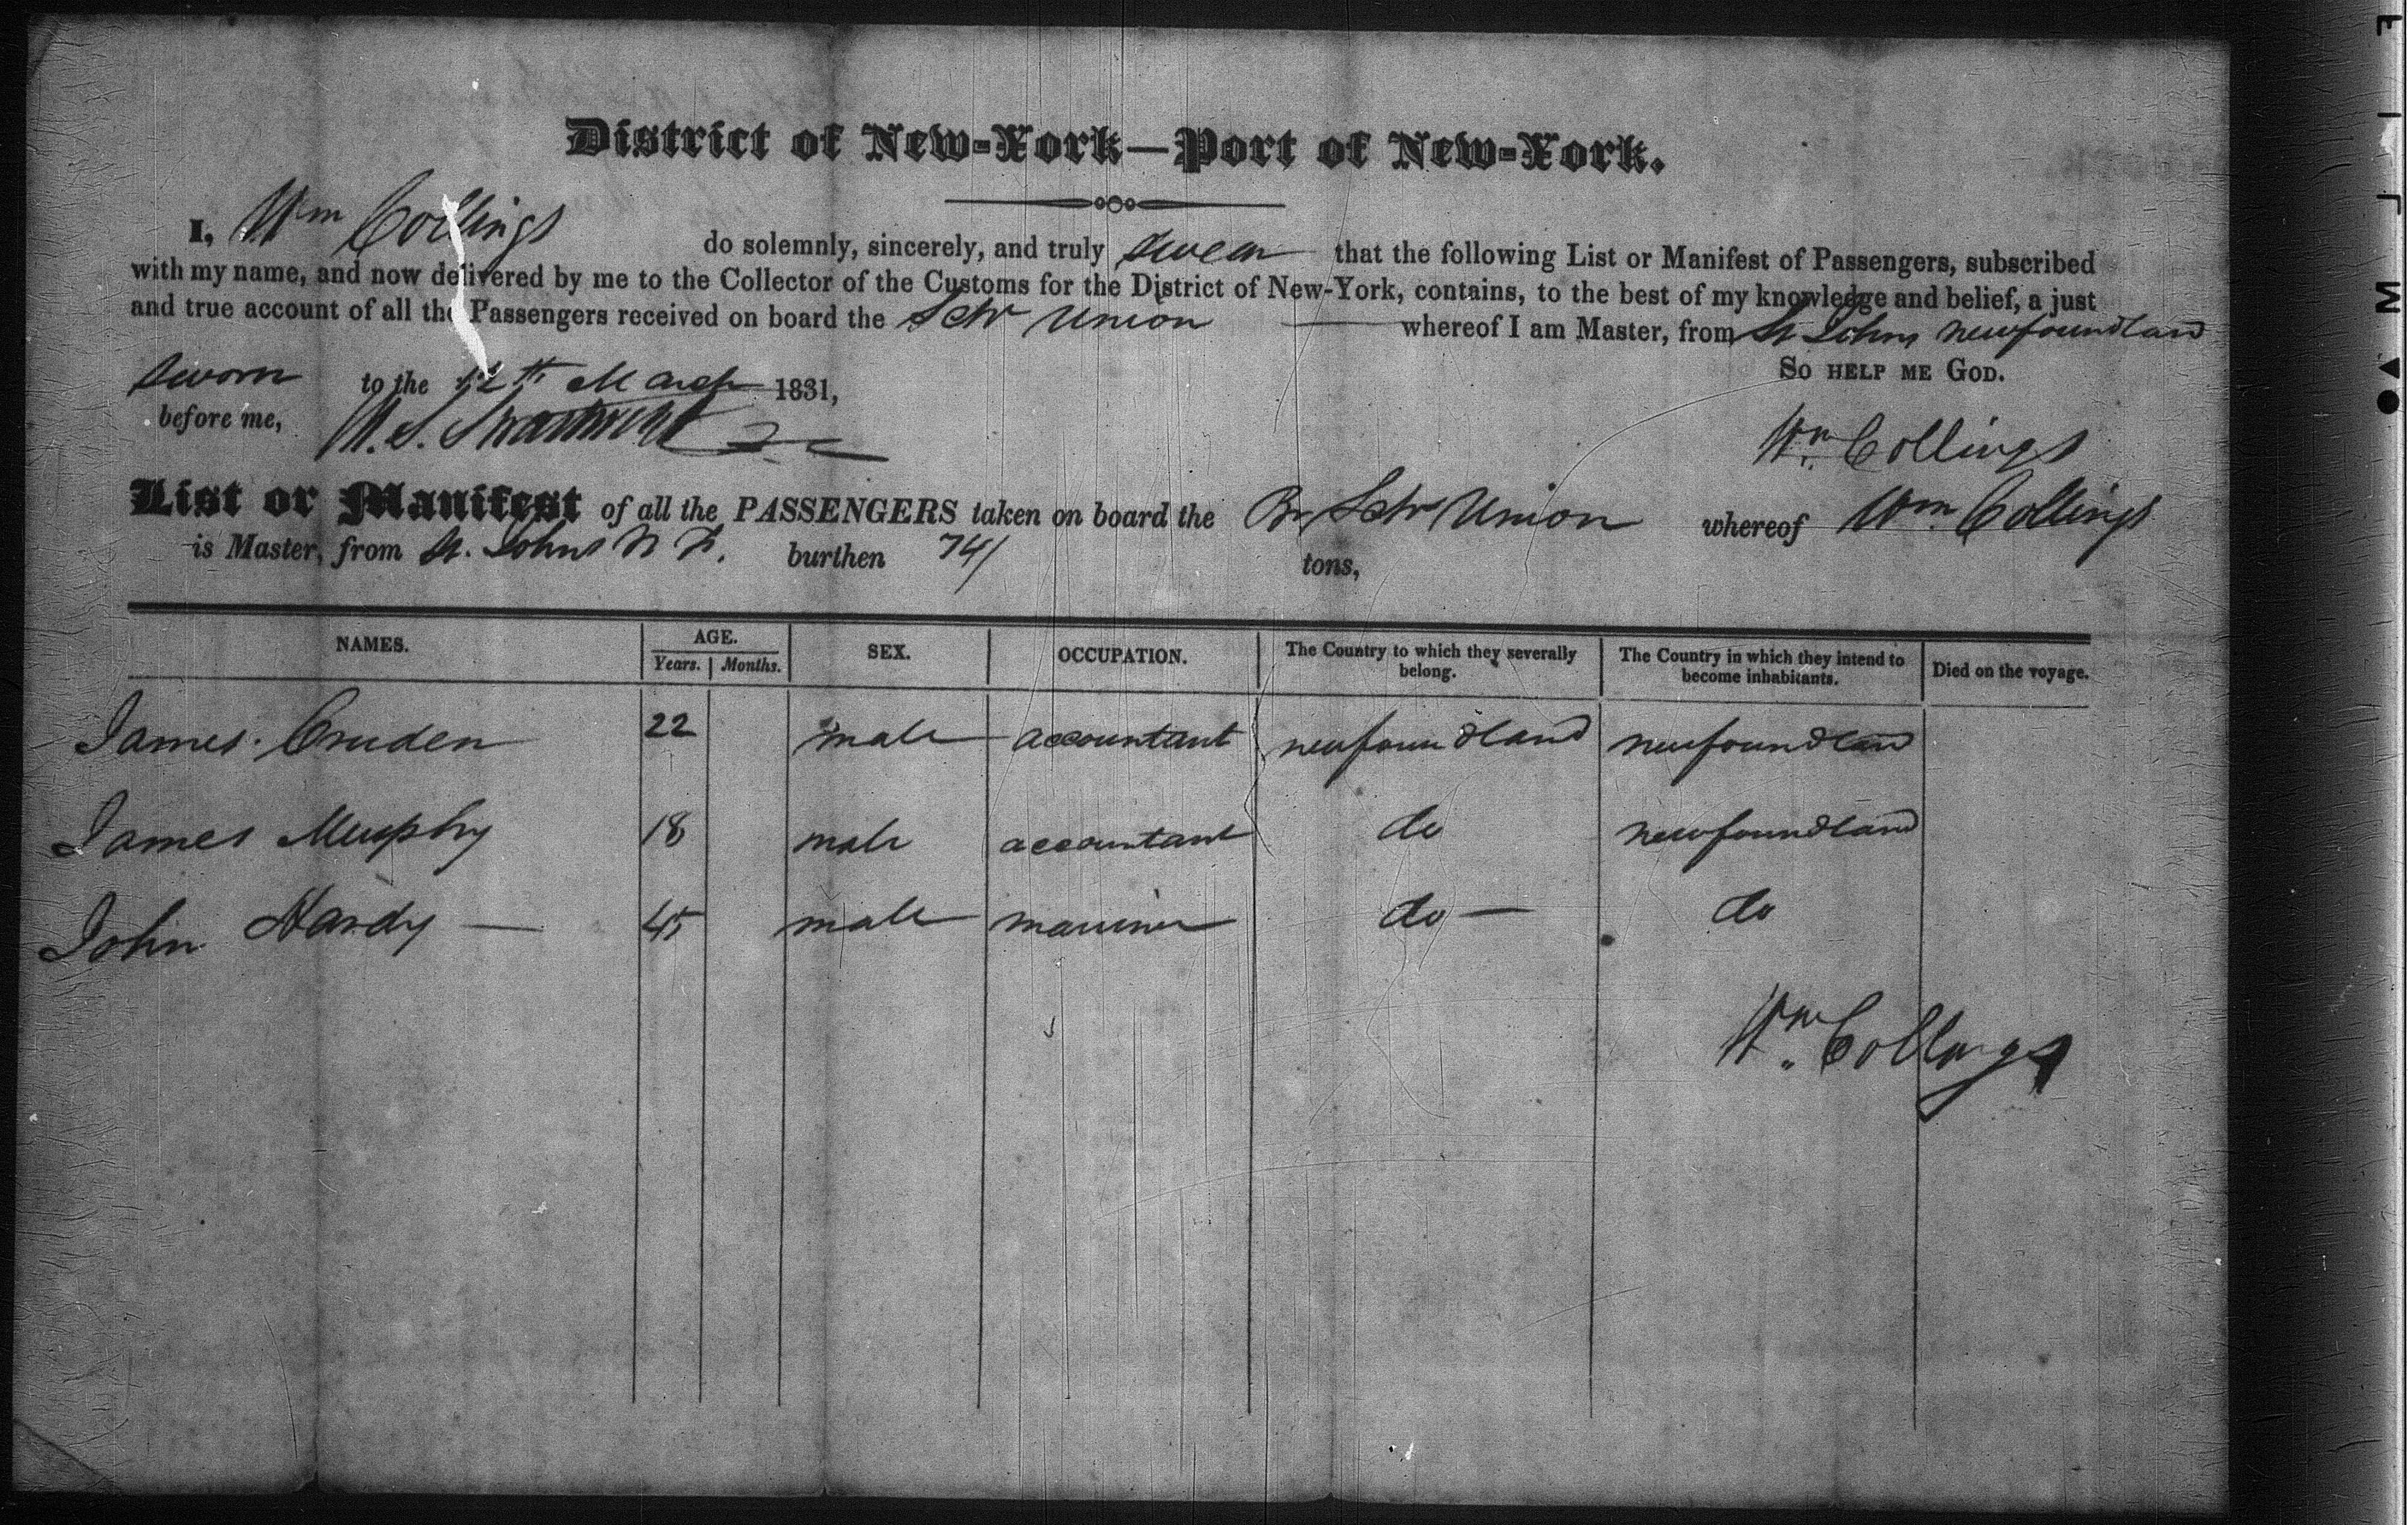 District of New-York—Port of New-York.
I, Wm Collings do solemnly, sincerely, and truly swear that the following List or Manifest of Passengers, subscribed
with my name, and now delivered by me to the Collector of the Customs for the District of New-York, contains, to the best of my knowledge and belief, a just
and true account of all the Passengers received on board the Schr Union whereof I am Master, from St Johns newfoundland
So help me God.
sworn to the 12th March 1831,
before me,
Wm Collings
List or Manifest of all the PASSENGERS taken on board the Br Schr Union whereof Wm Collings
is Master, from St. Johns N F. burthen tons,
NAMES. AGE. Years. Months. SEX. OCCUPATION. The Country to which they severally belong. The Country in which they intend to become inhabitants. Died on the voyage.
James Cruden 22 male accountant newfoundland newfoundland
James Murphy 18 male accountant do newfoundland
John Hardy — 45 male mariner do — do
Wm. Collings